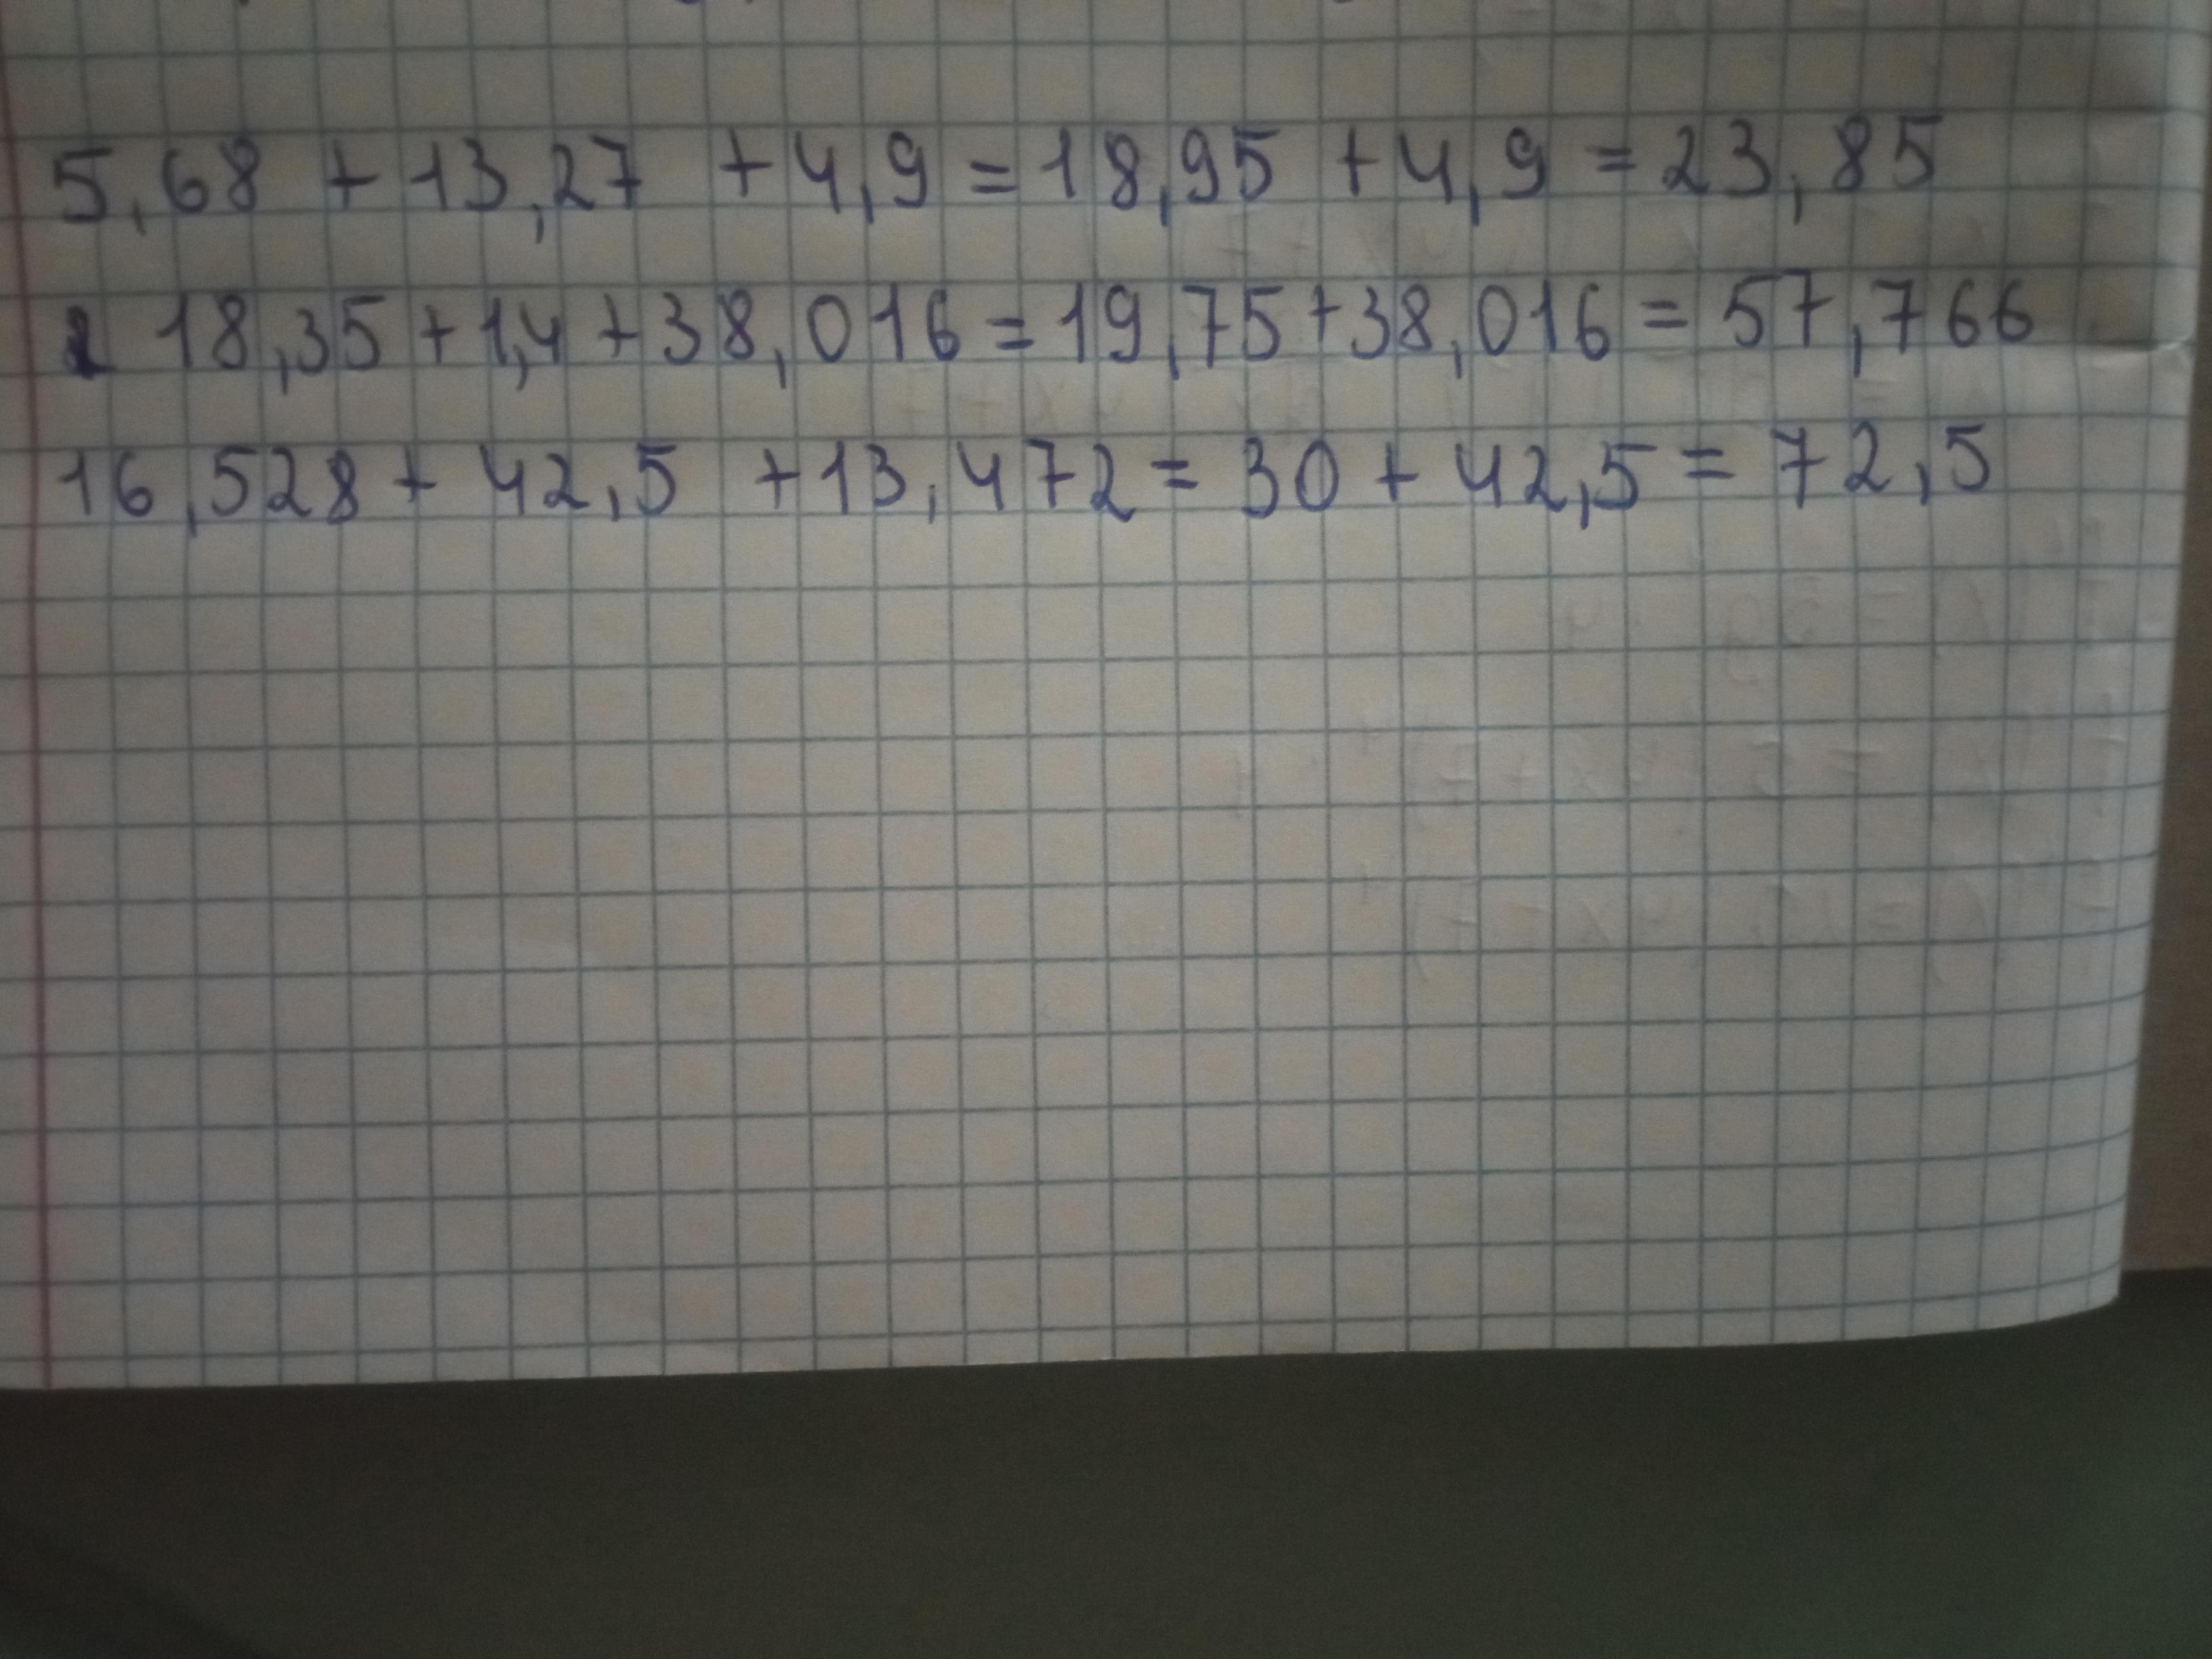 5,68 + 13,27 + 4,9 = 18,95 + 4,9 = 23,85
18,35 + 1,4 + 38,016 = 19,75 + 38,016 = 57,766
16,528 + 42,5 + 13,472 = 30 + 42,5 = 72,5